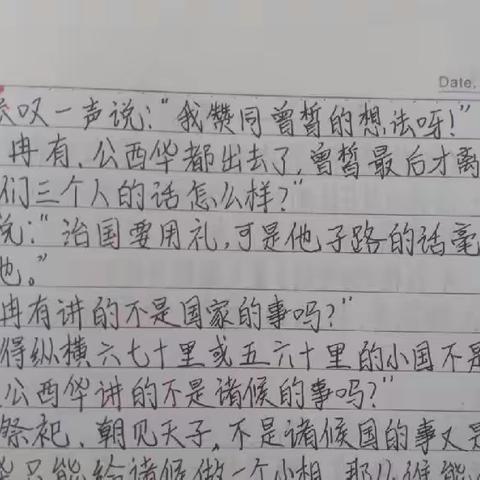 Date.
叹一声说:“我赞同曾皙的想法呀!”
冉有、公西华都出去了,曾皙最后才离
们三个人的话怎么样?”
说:“治国要用礼,可是他子路的话毫
他。”
冉有讲的不是国家的事吗?”
得纵横六七十里或五六十里的小国不是
公西华讲的不是诸候的事吗?”
祭祀、朝见天子,不是诸候国的事又是
只能给诸候做一个小相,那么谁能